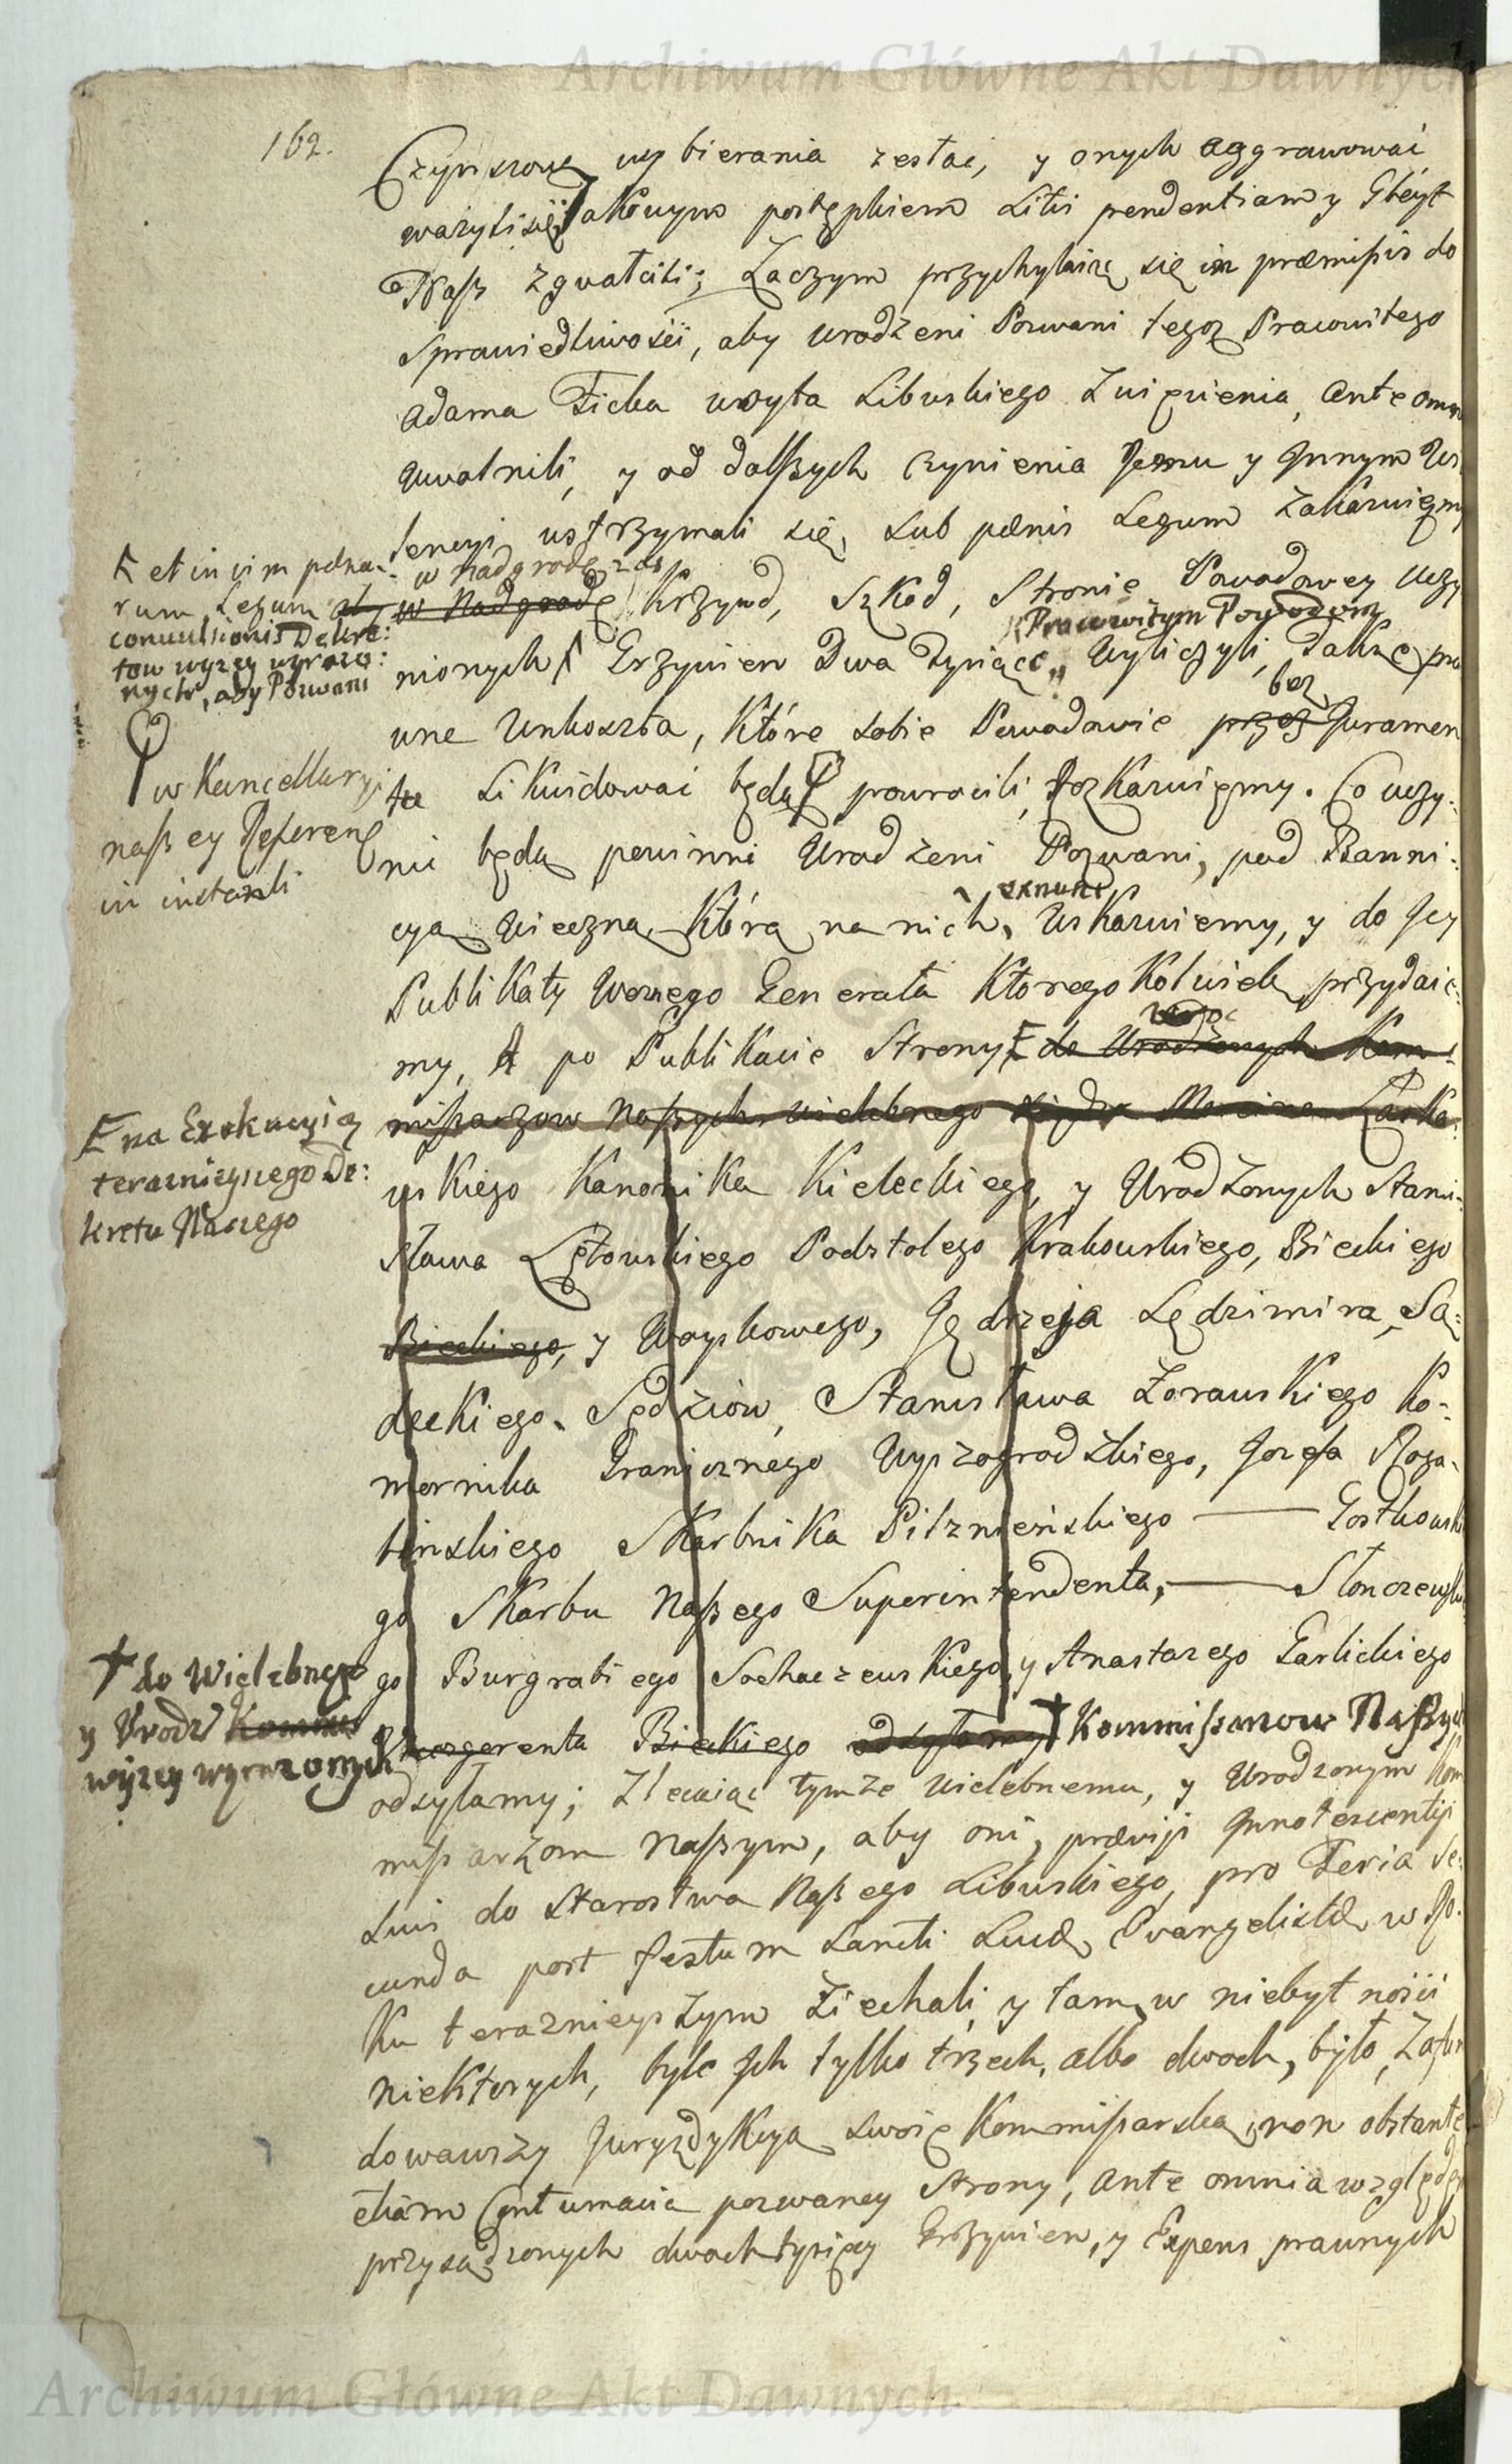 Archiwum Główne Akt Dawnych
162.
Czynszową wybierania zestać, y onych aggrawować
ważyli się, Takowym postępkiem Litis pendentiam y Gleyt
Nasz zgwałcili; Zaczym przychylaiąc się in præmissis do
Sprawiedliwości, aby Urodzeni Pozwani tegoz Pracowitego
Adama Ficka woyta Libuskiego z więzienia, ante omnia
Uwolnili, y od dalszych czynienia Jemu y Innym
tencyi ustrzymali się, sub pœnis Legum zakazuiemy
w nadgrodę zaś
w Nadgrodę Krzywd, Szkod, Stronie Powodowey uczy
Pracowitym Powodom
nionych Grzywien Dwa Tysiące, Wyliczyli, Takze pra
bez
wne Unkoszta, Które sobie Powodowie przez Juramen
tu Likwidować będą powrocili, Rozkazuiemy. Co uczy:
nić będą powinni Urodzeni Pozwani, pod Banni:
exnunc
cyą Wieczną, Którą na nich, Wskazuiemy, y do Jey
Publikaty Woznego Generała Ktoregokolwiek przydaie:
my, A po Publikacie Strony do Urodzonych Kom:
missarzow Naszych Wielebnego Xiędza Marcina Laska:
wskiego Kanonika Kieleckiego, y Urodzonych Stani:
sława Lętowskiego Podstolego Krakowskiego, Bieckiego
Bieckiego, y Woyskowego, Jędrzeja Lędzimira, Są:
deckiego, Sędziow, Stanisława Zorawskiego Ko:
mornika Granicznego Wyszogrodzkiego, Jozefa Roga:
lińskiego Skarbnika Pilznieńskiego — Gostkowski
go Skarbu Naszego Superintendenta, — Słonczewski
go Burgrabiego Sochaczewskiego, y Anastazego Garlickiego
Viczgerenta Bieckiego odsyłamy Kommissarzow Naszych
odsyłamy; Zlecaiąc tymze Wielebnemu, y Urodzonym Kom
missarzom Naszym, aby oni, prævijs Innotescentijs
suis do Starostwa Naszego Libuskiego, pro Feria Se:
cunda post Festum Sancti Lucæ Evangelistæ w Ro:
ku teraznieyszym Ziechali, y tam, w niebytności
niektorych, byle Ich tylko trzech, albo dwoch, było, Zafun
dowawszy Juryzdykcyą swoię Kommissarską, non obstante
etiam Contumacia pozwaney Strony, ante omnia względem
przysądzonych dwoch tysięcy Grzywien, y Expens prawnych
et in vim pœna:
rum Legum
convulsionis Dekre:
tow wyzey wyrazo:
nych, aby Pozwani
w Kancellaryi
naszey Referen
in instanti
na Exekucyią
teraznieyszego De:
kretu Naszego
do Wielebnego
y Urodz
wyzey wyrazonych
Archiwum Główne Akt Dawnych